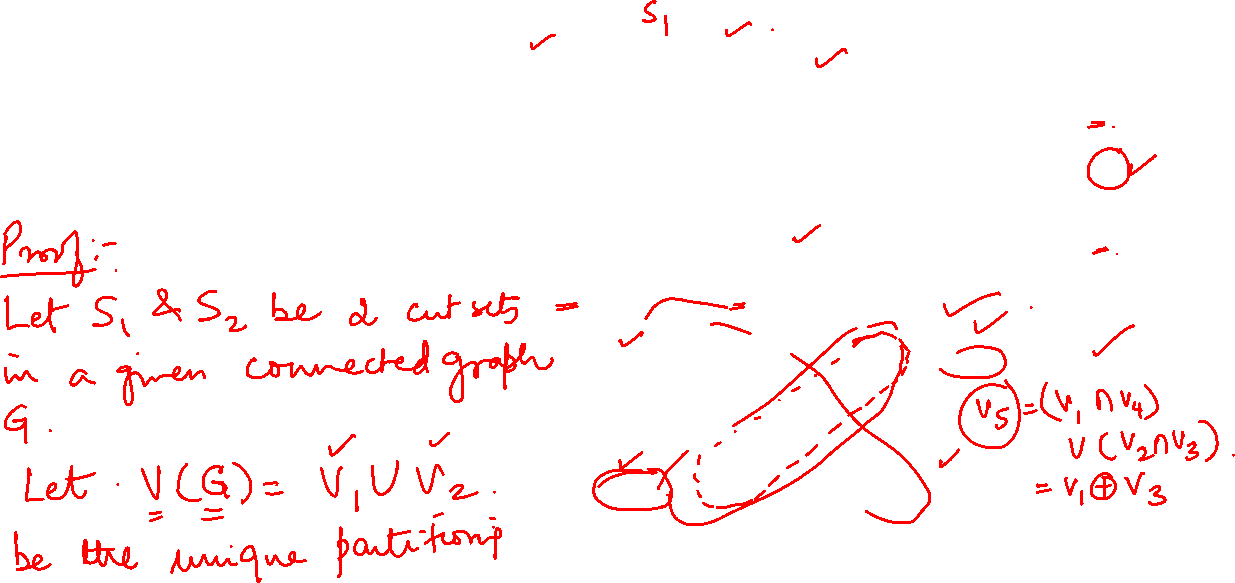 S₁
Proof:-
Let S₁ & S₂ be 2 cut sets
in a given connected graph
G.
Let V(G) = V₁ ∪ V₂.
be the unique partitions
V₅ = (V₁ ∩ V₄)
∪ (V₂ ∩ V₃).
= V₁ ⊕ V₃